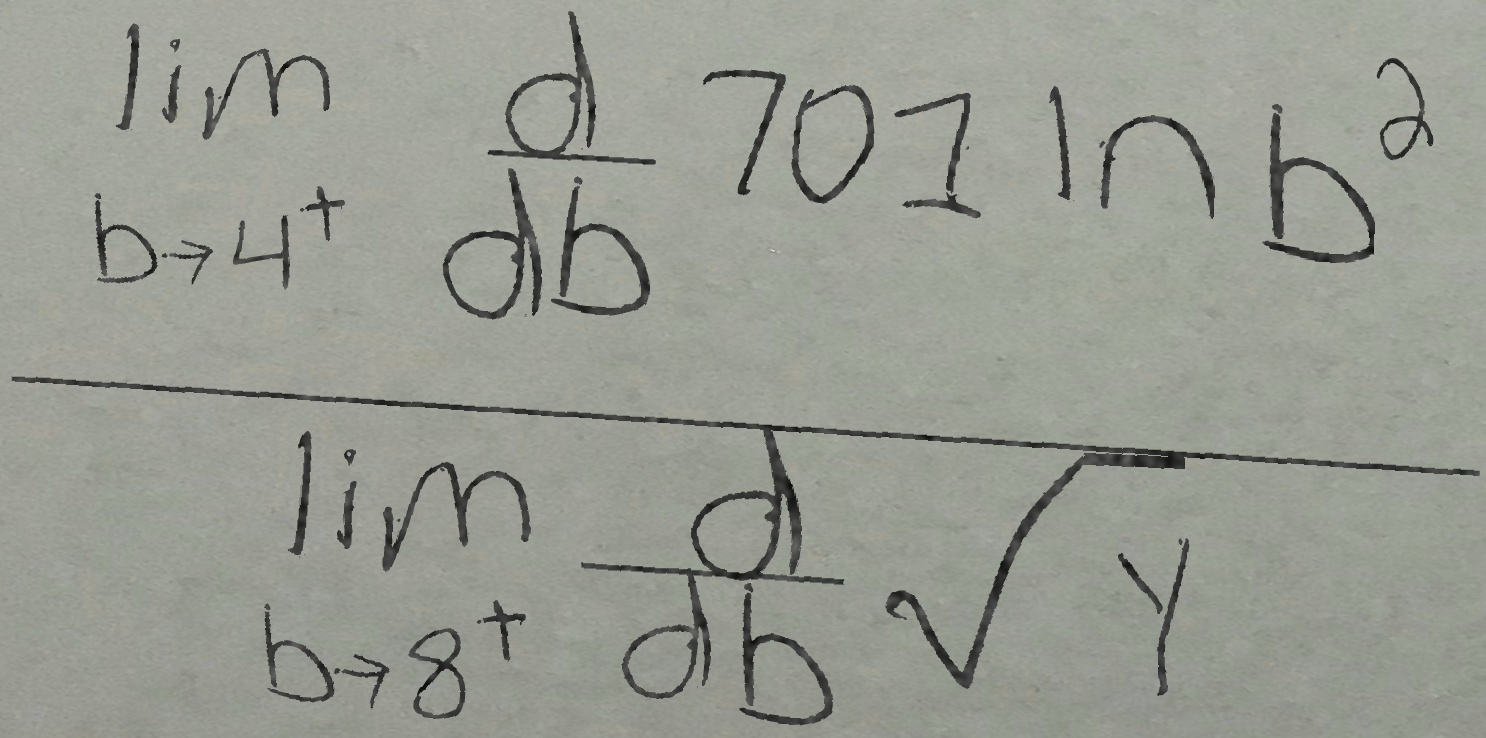 \frac{\lim_{b \to 4^+} \frac{d}{db} 701 \ln b^2}{\lim_{b \to 8^+} \frac{d}{db} \sqrt{y}}